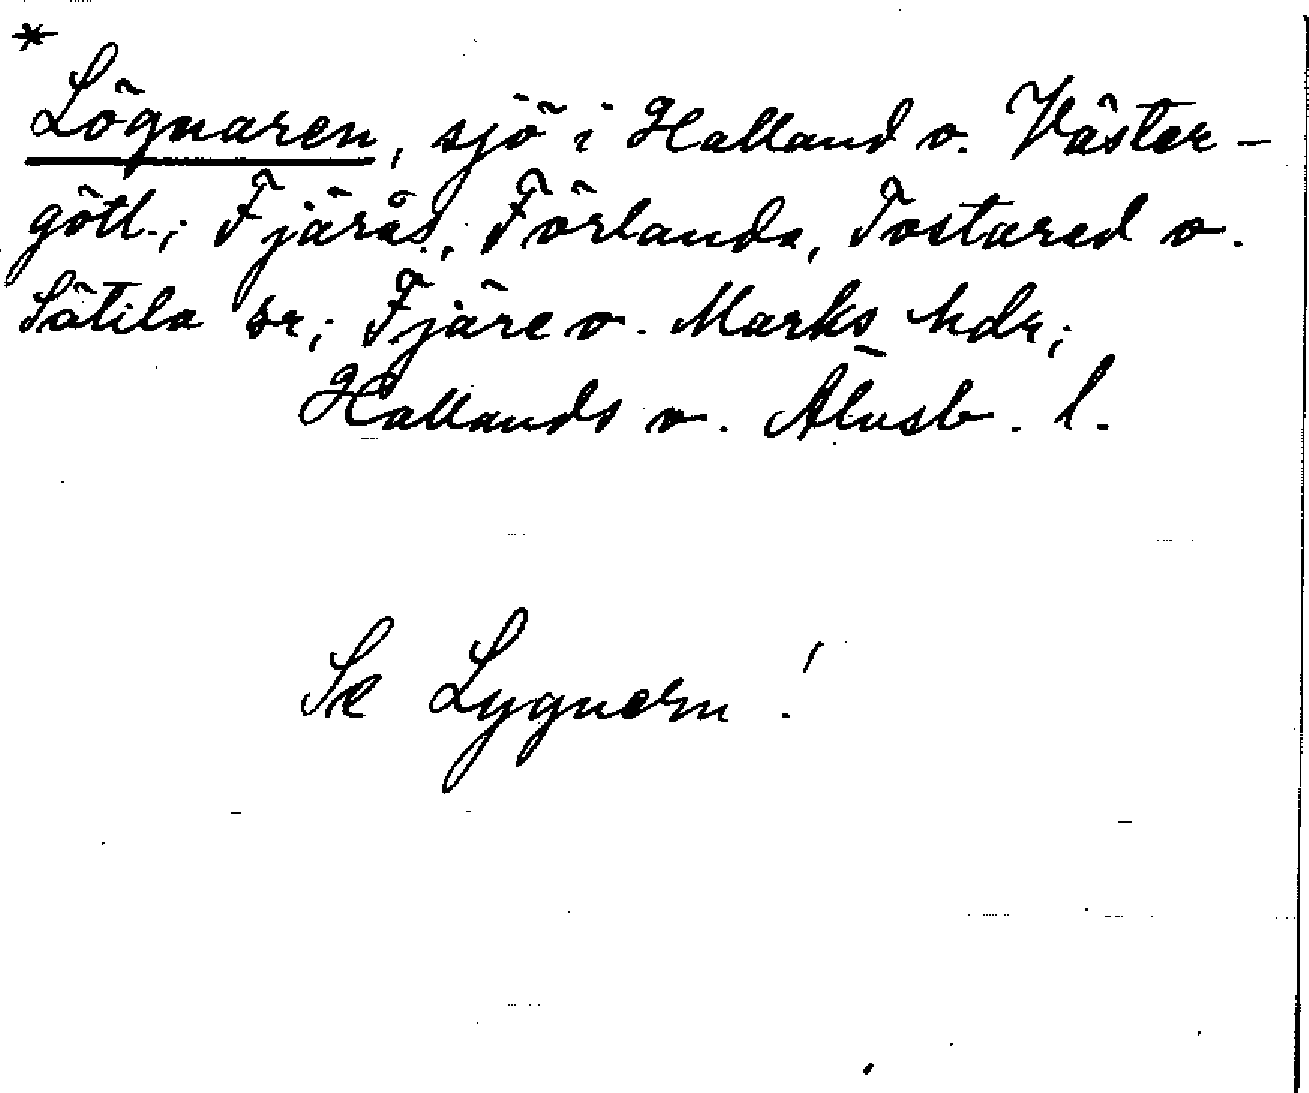 *
Lögnaren, sjö i Halland o. Väster-
götl.; Fjärås, Förlanda, Tostared o.
Sätila sr; Fjäre o. Marks hdr;
Hallands o. Älvsb. l.
Se Lygnern!